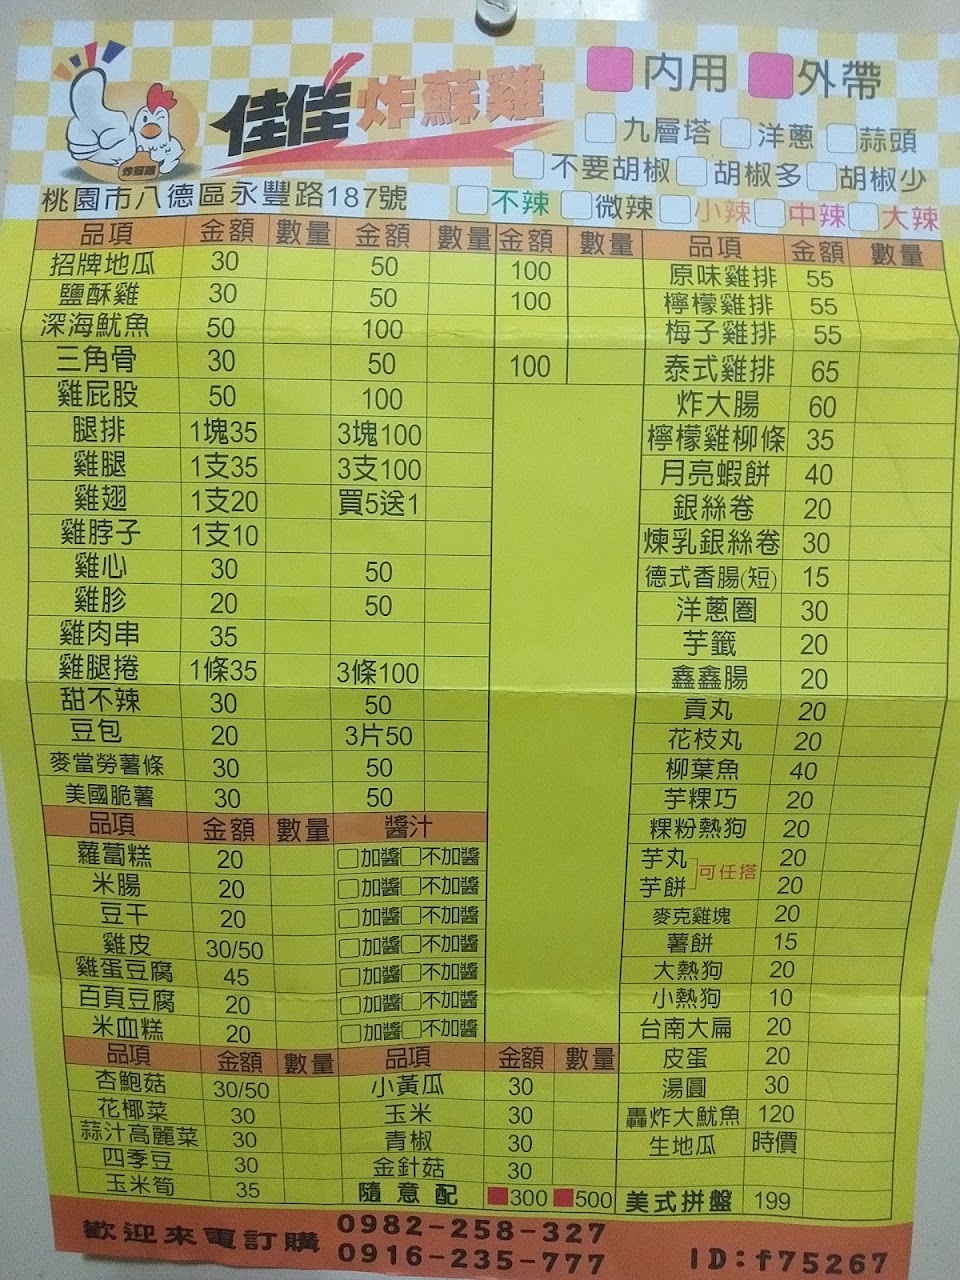 內用 外帶
佳佳 炸蘇雞
炸蘇雞
九層塔 洋蔥 蒜頭
不要胡椒 胡椒多 胡椒少
桃園市八德區永豐路187號
不辣 微辣 小辣 中辣 大辣
品項 金額 數量 金額 數量 金額 數量
招牌地瓜 30 50 100
鹽酥雞 30 50 100
深海魷魚 50 100
三角骨 30 50 100
雞屁股 50 100
腿排 1塊35 3塊100
雞腿 1支35 3支100
雞翅 1支20 買5送1
雞脖子 1支10
雞心 30 50
雞胗 20 50
雞肉串 35
雞腿捲 1條35 3條100
甜不辣 30 50
豆包 20 3片50
麥當勞薯條 30 50
美國脆薯 30 50
品項 金額 數量 醬汁
蘿蔔糕 20 加醬 不加醬
米腸 20 加醬 不加醬
豆干 20 加醬 不加醬
雞皮 30/50 加醬 不加醬
雞蛋豆腐 45 加醬 不加醬
百頁豆腐 20 加醬 不加醬
米血糕 20 加醬 不加醬
品項 金額 數量 品項 金額 數量
杏鮑菇 30/50 小黃瓜 30
花椰菜 30 玉米 30
蒜汁高麗菜 30 青椒 30
四季豆 30 金針菇 30
玉米筍 35 隨意配 300 500
品項 金額 數量
原味雞排 55
檸檬雞排 55
梅子雞排 55
泰式雞排 65
炸大腸 60
檸檬雞柳條 35
月亮蝦餅 40
銀絲卷 20
煉乳銀絲卷 30
德式香腸(短) 15
洋蔥圈 30
芋籤 20
鑫鑫腸 20
貢丸 20
花枝丸 20
柳葉魚 40
芋粿巧 20
粿粉熱狗 20
芋丸 20
可任搭
芋餅 20
麥克雞塊 20
薯餅 15
大熱狗 20
小熱狗 10
台南大扁 20
皮蛋 20
湯圓 30
轟炸大魷魚 120
生地瓜 時價
美式拼盤 199
歡迎來電訂購
0982-258-327
0916-235-777
ID:f75267